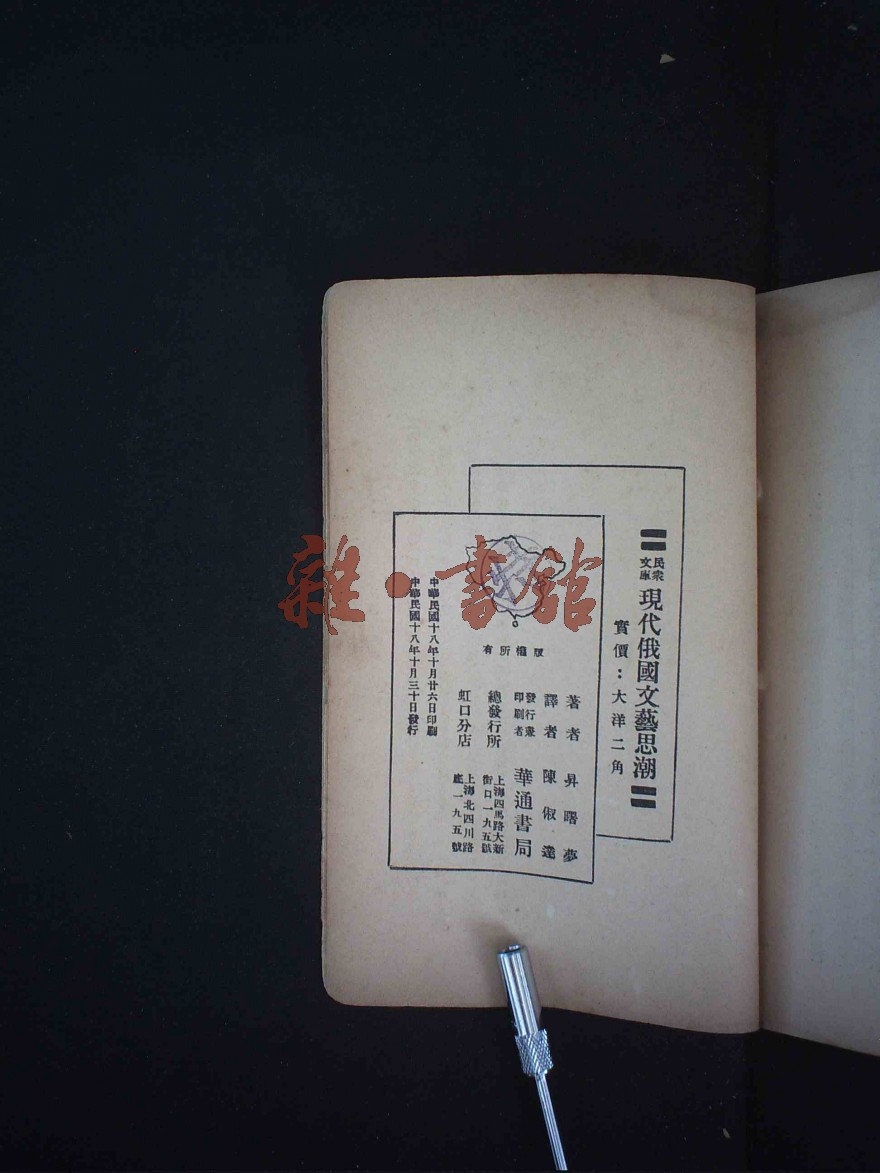 民衆
文庫
現代俄國文藝思潮
實價：大洋二角
版權所有
著者 昇曙夢
譯者 陳俶達
發行兼
印刷者
華通書局
總發行所
上海四馬路大新
街口一九五號
虹口分店
上海北四川路
底一九五號
中華民國十八年十月廿六日印刷
中華民國十八年十月三十日發行
雜·書館